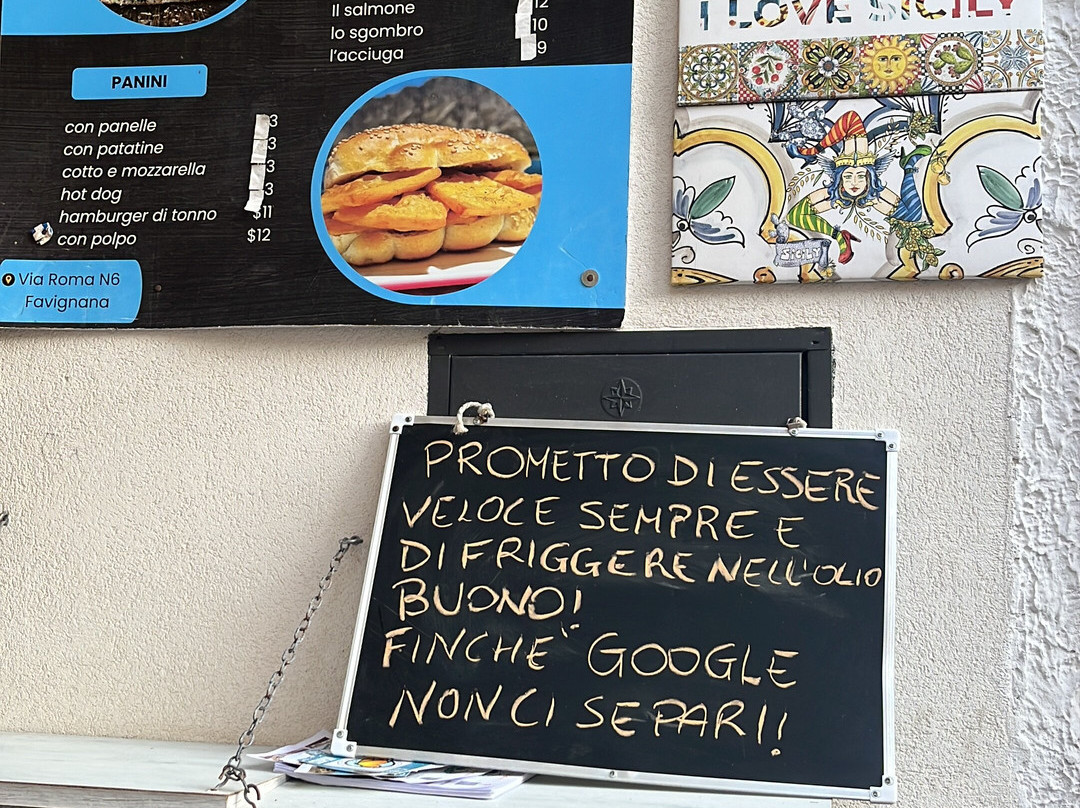 Il salmone 12
lo sgombro 10
l'acciuga 9
PANINI
con panelle 3
con patatine 3
cotto e mozzarella 3
hot dog 3
hamburger di tonno $11
con polpo $12
Via Roma N6
Favignana
I LOVE SICILY
SICILY
PROMETTO DI ESSERE
VELOCE SEMPRE E
DI FRIGGERE NELL'OLIO
BUONO!
FINCHE" GOOGLE
NON CI SEPARI!!